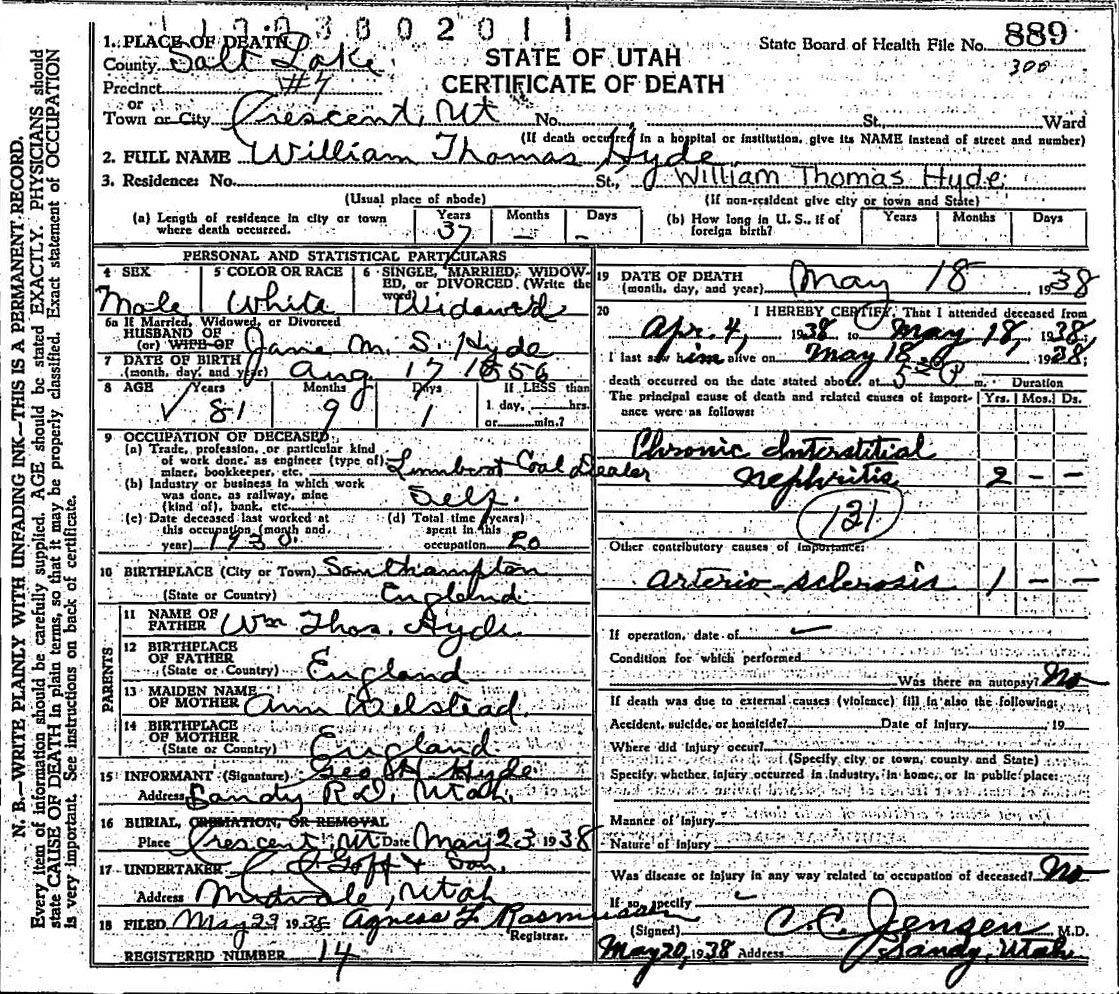 1 1 0 0 3 8 0 2 0 1 1
1. PLACE OF DEATH
County Salt Lake
Precinct #4
or
Town or City Crescent, Ut No. St. Ward
STATE OF UTAH
CERTIFICATE OF DEATH
State Board of Health File No. 889
300
(If death occurred in a hospital or institution, give its NAME instead of street and number)
2. FULL NAME William Thomas Hyde
3. Residence: No. St., William Thomas Hyde
(Usual place of abode) (If non-resident give city or town and State)
(a) Length of residence in city or town where death occurred. Years 37 Months – Days –
(b) How long in U. S., if of foreign birth? Years Months Days
PERSONAL AND STATISTICAL PARTICULARS
4 SEX Male
5 COLOR OR RACE White
6 SINGLE, MARRIED, WIDOWED, or DIVORCED (Write the word) Widowed
6a If Married, Widowed, or Divorced
HUSBAND OF
(or) WIFE OF Jane M. S. Hyde
7 DATE OF BIRTH
(month, day, and year) Aug 17 1856
8 AGE Years 81 Months 9 Days 1 If LESS than
1 day, hrs.
or min.?
9 OCCUPATION OF DECEASED
(a) Trade, profession, or particular kind
of work done, as engineer (type of)
miner, bookkeeper, etc. Coal Dealer
(b) Industry or business in which work
was done, as railway, mine
(kind of), bank, etc. Self.
(c) Date deceased last worked at
this occupation (month and
year) 1930.
(d) Total time (years)
spent in this
occupation 20
10 BIRTHPLACE (City or Town) Southampton
(State or Country) England
PARENTS
11 NAME OF
FATHER Wm Thos. Hyde
12 BIRTHPLACE
OF FATHER
(State or Country) England
13 MAIDEN NAME
OF MOTHER Ann
14 BIRTHPLACE
OF MOTHER
(State or Country) England
15 INFORMANT (Signature) Geo H Hyde
Address Sandy R D, Utah.
16 BURIAL, CREMATION, OR REMOVAL
Place Crescent, Ut Date May 23 1938
17 UNDERTAKER Goff & Son.
Address Midvale, Utah
18 FILED May 23 1938 Agness L Rasmussen
Registrar.
REGISTERED NUMBER 14
19 DATE OF DEATH
(month, day, and year) May 18 1938
20 I HEREBY CERTIFY, That I attended deceased from
Apr. 4, 1938 to May 18, 1938
I last saw him alive on May 18 1938;
death occurred on the date stated above, at 5 30 P m. Duration
The principal cause of death and related causes of importance were as follows: Yrs. Mos. Ds.
Chronic Interstitial
nephritis 2 – –
131
Other contributory causes of importance:
arterio-sclerosis 1 – –
If operation, date of
Condition for which performed
Was there an autopsy? No
If death was due to external causes (violence) fill in also the following:
Accident, suicide, or homicide? Date of Injury 19
Where did injury occur?
(Specify city or town, county and State)
Specify whether injury occurred in industry, in home, or in public place:
Manner of Injury
Nature of Injury
Was disease or injury in any way related to occupation of deceased? No
If so specify
(Signed) C. C. Jensen M.D.
May 20, 1938 Address Sandy, Utah
N. B.—WRITE PLAINLY WITH UNFADING INK—THIS IS A PERMANENT RECORD.
Every item of information should be carefully supplied. AGE should be stated EXACTLY. PHYSICIANS should
state CAUSE OF DEATH in plain terms, so that it may be properly classified. Exact statement of OCCUPATION
is very important. See instructions on back of certificate.